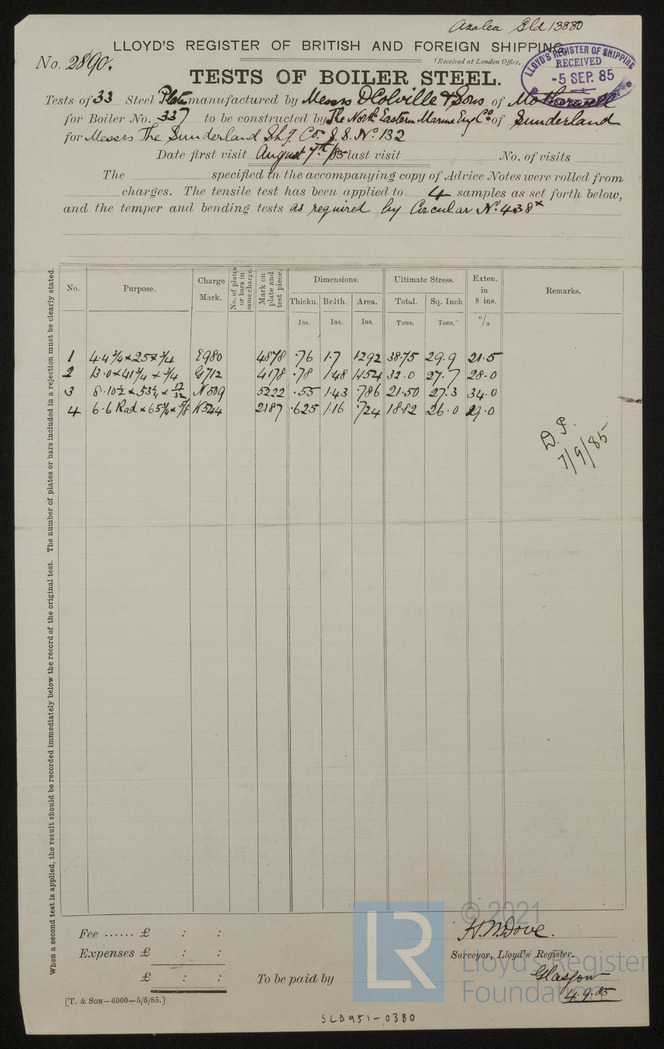 Azalea Sld 13880
LLOYD'S REGISTER OF BRITISH AND FOREIGN SHIPPING.
No. 2890.
(Received at London Office,
LLOYD'S REGISTER OF SHIPPING
RECEIVED
-5 SEP. 85
TESTS OF BOILER STEEL.
Tests of 33 Steel Plates manufactured by Messrs D Colville & Sons of Motherwell
for Boiler No. 337 to be constructed by The North Eastern Marine Eng Co of Sunderland
for Messrs The Sunderland Sbg Co. S.S. No 132
Date first visit August 7th/85 last visit No. of visits
The specified in the accompanying copy of Advice Notes were rolled from
charges. The tensile test has been applied to 4 samples as set forth below,
and the temper and bending tests as required by Circular No 438x
When a second test is applied, the result should be recorded immediately below the record of the original test. The number of plates or bars included in a rejection must be clearly stated.
No. Purpose. Charge Mark. No. of plates or bars in same charge. Mark on plate and test piece. Dimensions. Ultimate Stress. Exten. in 8 ins. Remarks.
Thickn. Brdth. Area. Total. Sq. Inch
Ins. Ins. Ins. Tons. Tons. %
1 4.4 3/4 x 25 x 3/4 E980 4878 .76 1.7 1.292 38.75 29.9 21.5
2 13.0 x 41 3/4 x 3/4 G712 4178 .78 1.48 1.154 32.0 27.7 28.0
3 8.10 1/2 x 53 1/4 x 17/32 N509 5222 .55 1.43 .786 21.50 27.3 34.0
4 6.6 Rad x 65 1/4 x 5/8 K544 2187 .625 1.16 .724 18.82 26.0 29.0
7/9/85
Fee ...... £ : :
Expenses £ : :
£ : :
To be paid by
H. M. Dove.
Surveyor, Lloyd's Register.
Glasgow
4.9.85
[T. & SON—6000—5/5/85.]
LR
© 2021
Lloyd's Register
Foundation
SLD951-0380